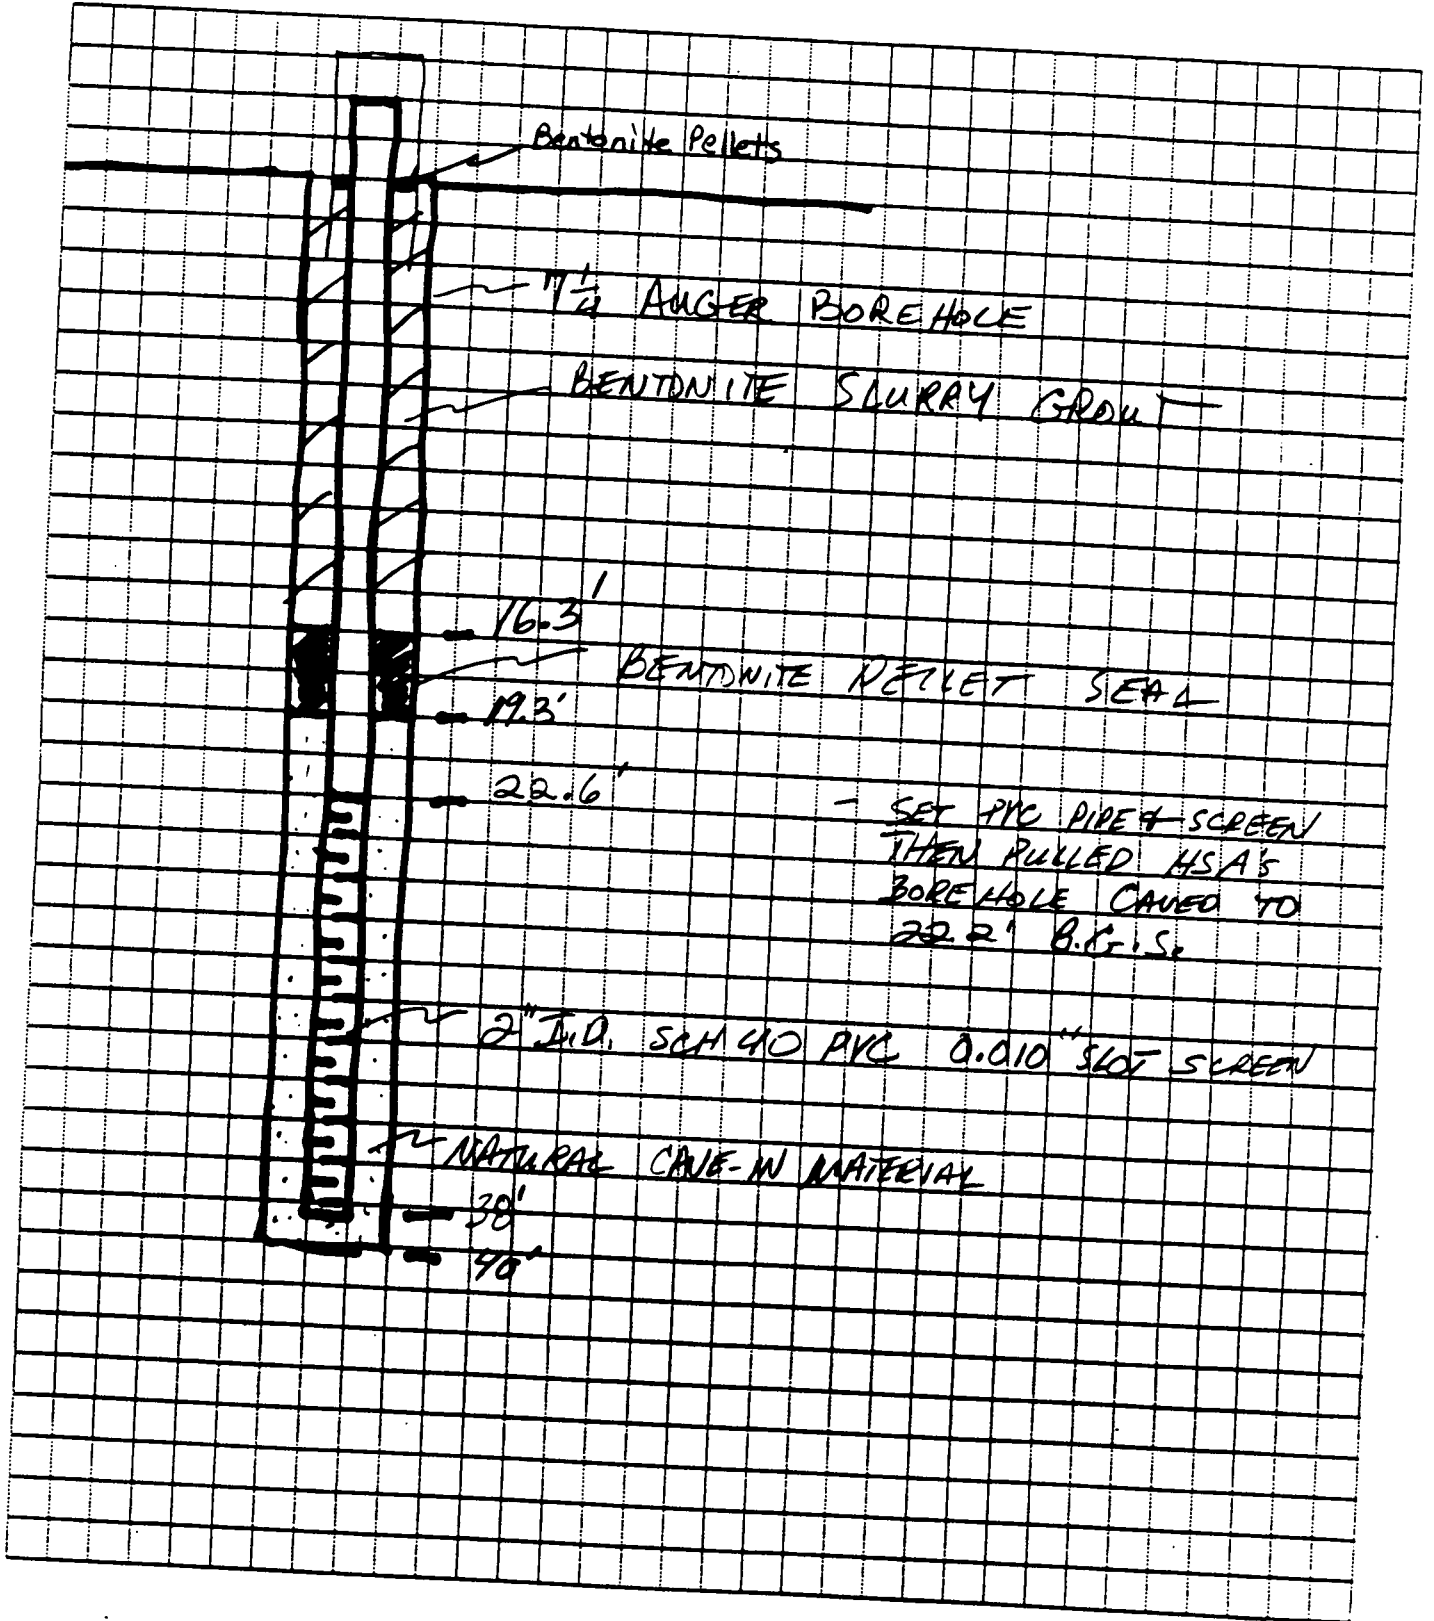 Bentonite Pellets
7 1/4 AUGER BOREHOLE
BENTONITE SLURRY GROUT
16.3'
BENTONITE PELLET SEAL
19.3'
22.6'
- SET PVC PIPE & SCREEN
THEN PULLED HSA's
BOREHOLE CAVED TO
22.2' B.G.S.
2" I.D. SCH 40 PVC 0.010" SLOT SCREEN
NATURAL CAVE-IN MATERIAL
38'
40'